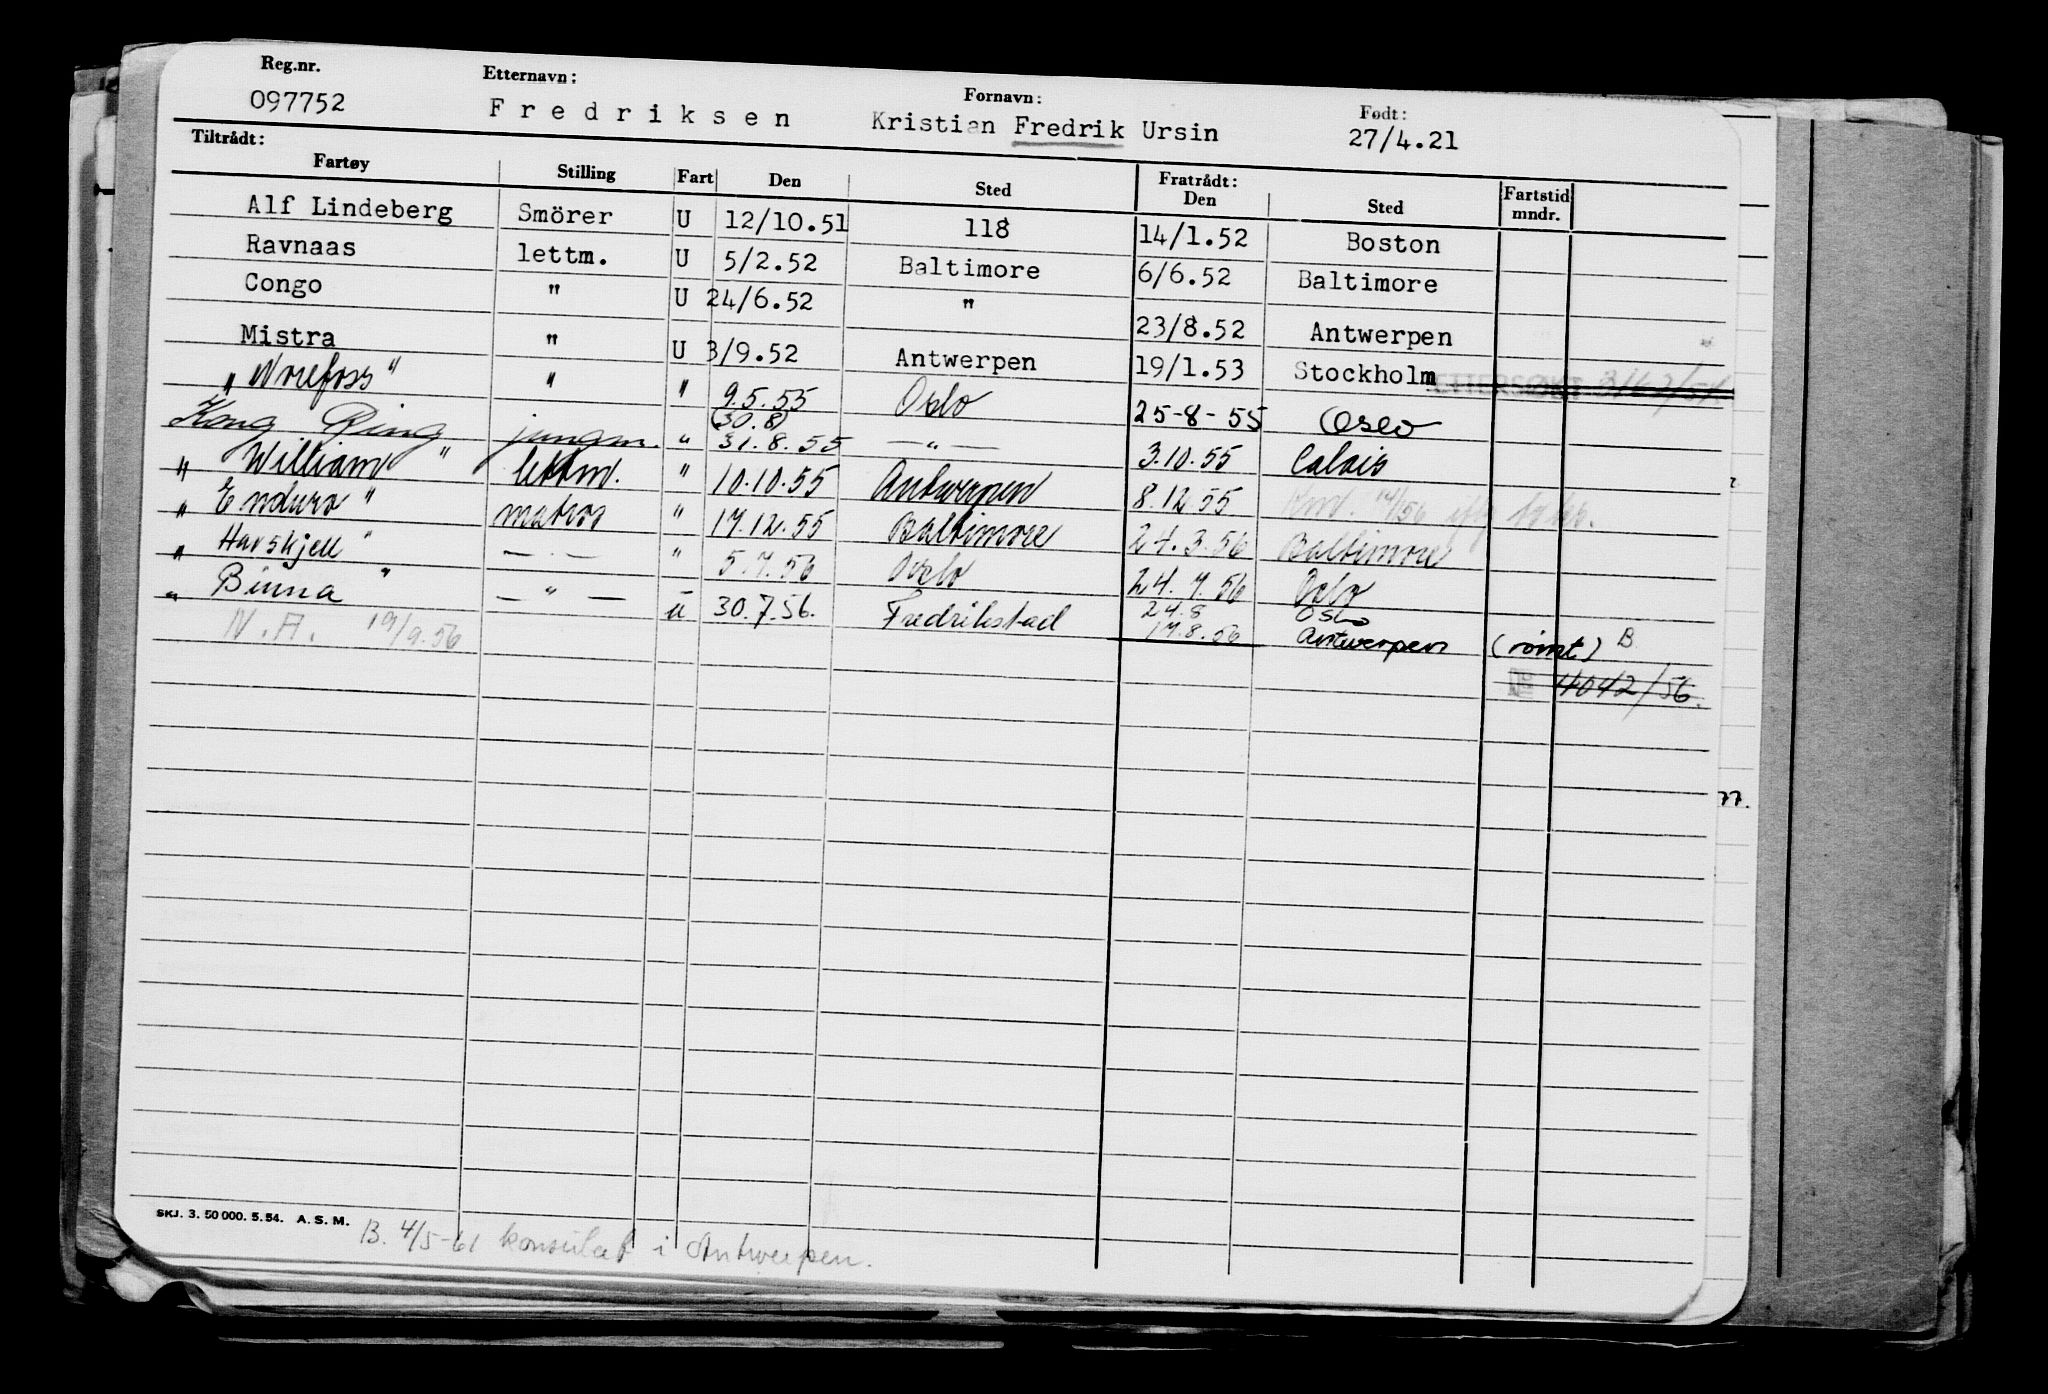 Reg.nr. Etternavn: Fornavn: Født:
097752 Fredriksen Kristian Fredrik Ursin 27/4.21
Tiltrådt: Fratrådt:
Fartøy Stilling Fart Den Sted Den Sted Fartstid mndr.
Alf Lindeberg Smörer U 12/10.51 118 14/1.52 Boston
Ravnaas lettm. U 5/2.52 Baltimore 6/6.52 Baltimore
Congo " U 24/6.52 " 23/8.52 Antwerpen
Mistra " U 3/9.52 Antwerpen 19/1.53 Stockholm
"Norefoss" " " 9.5.55 Oslo 25-8-55 Oslo
(30.8)
Kong Ring jungm. " 31.8.55 —"— 3.10.55 Calais
" William " lettm. " 10.10.55 Antwerpen 8.12.55
" Enduro " matros " 17.12.55 Baltimore 24.3.56 Baltimore
" Havskjell " — " — " 5.7.56 Oslo 24.7.56 Oslo
" Binna " — " — u 30.7.56. Fredrikstad 24.8 Oslo
17.8.56 Antwerpen (rømt) B
N.A. 19/9.56
4042/56.
77.
SKJ. 3. 50 000. 5. 54. A. S. M.
B. 4/5-61 konsulat i Antwerpen.